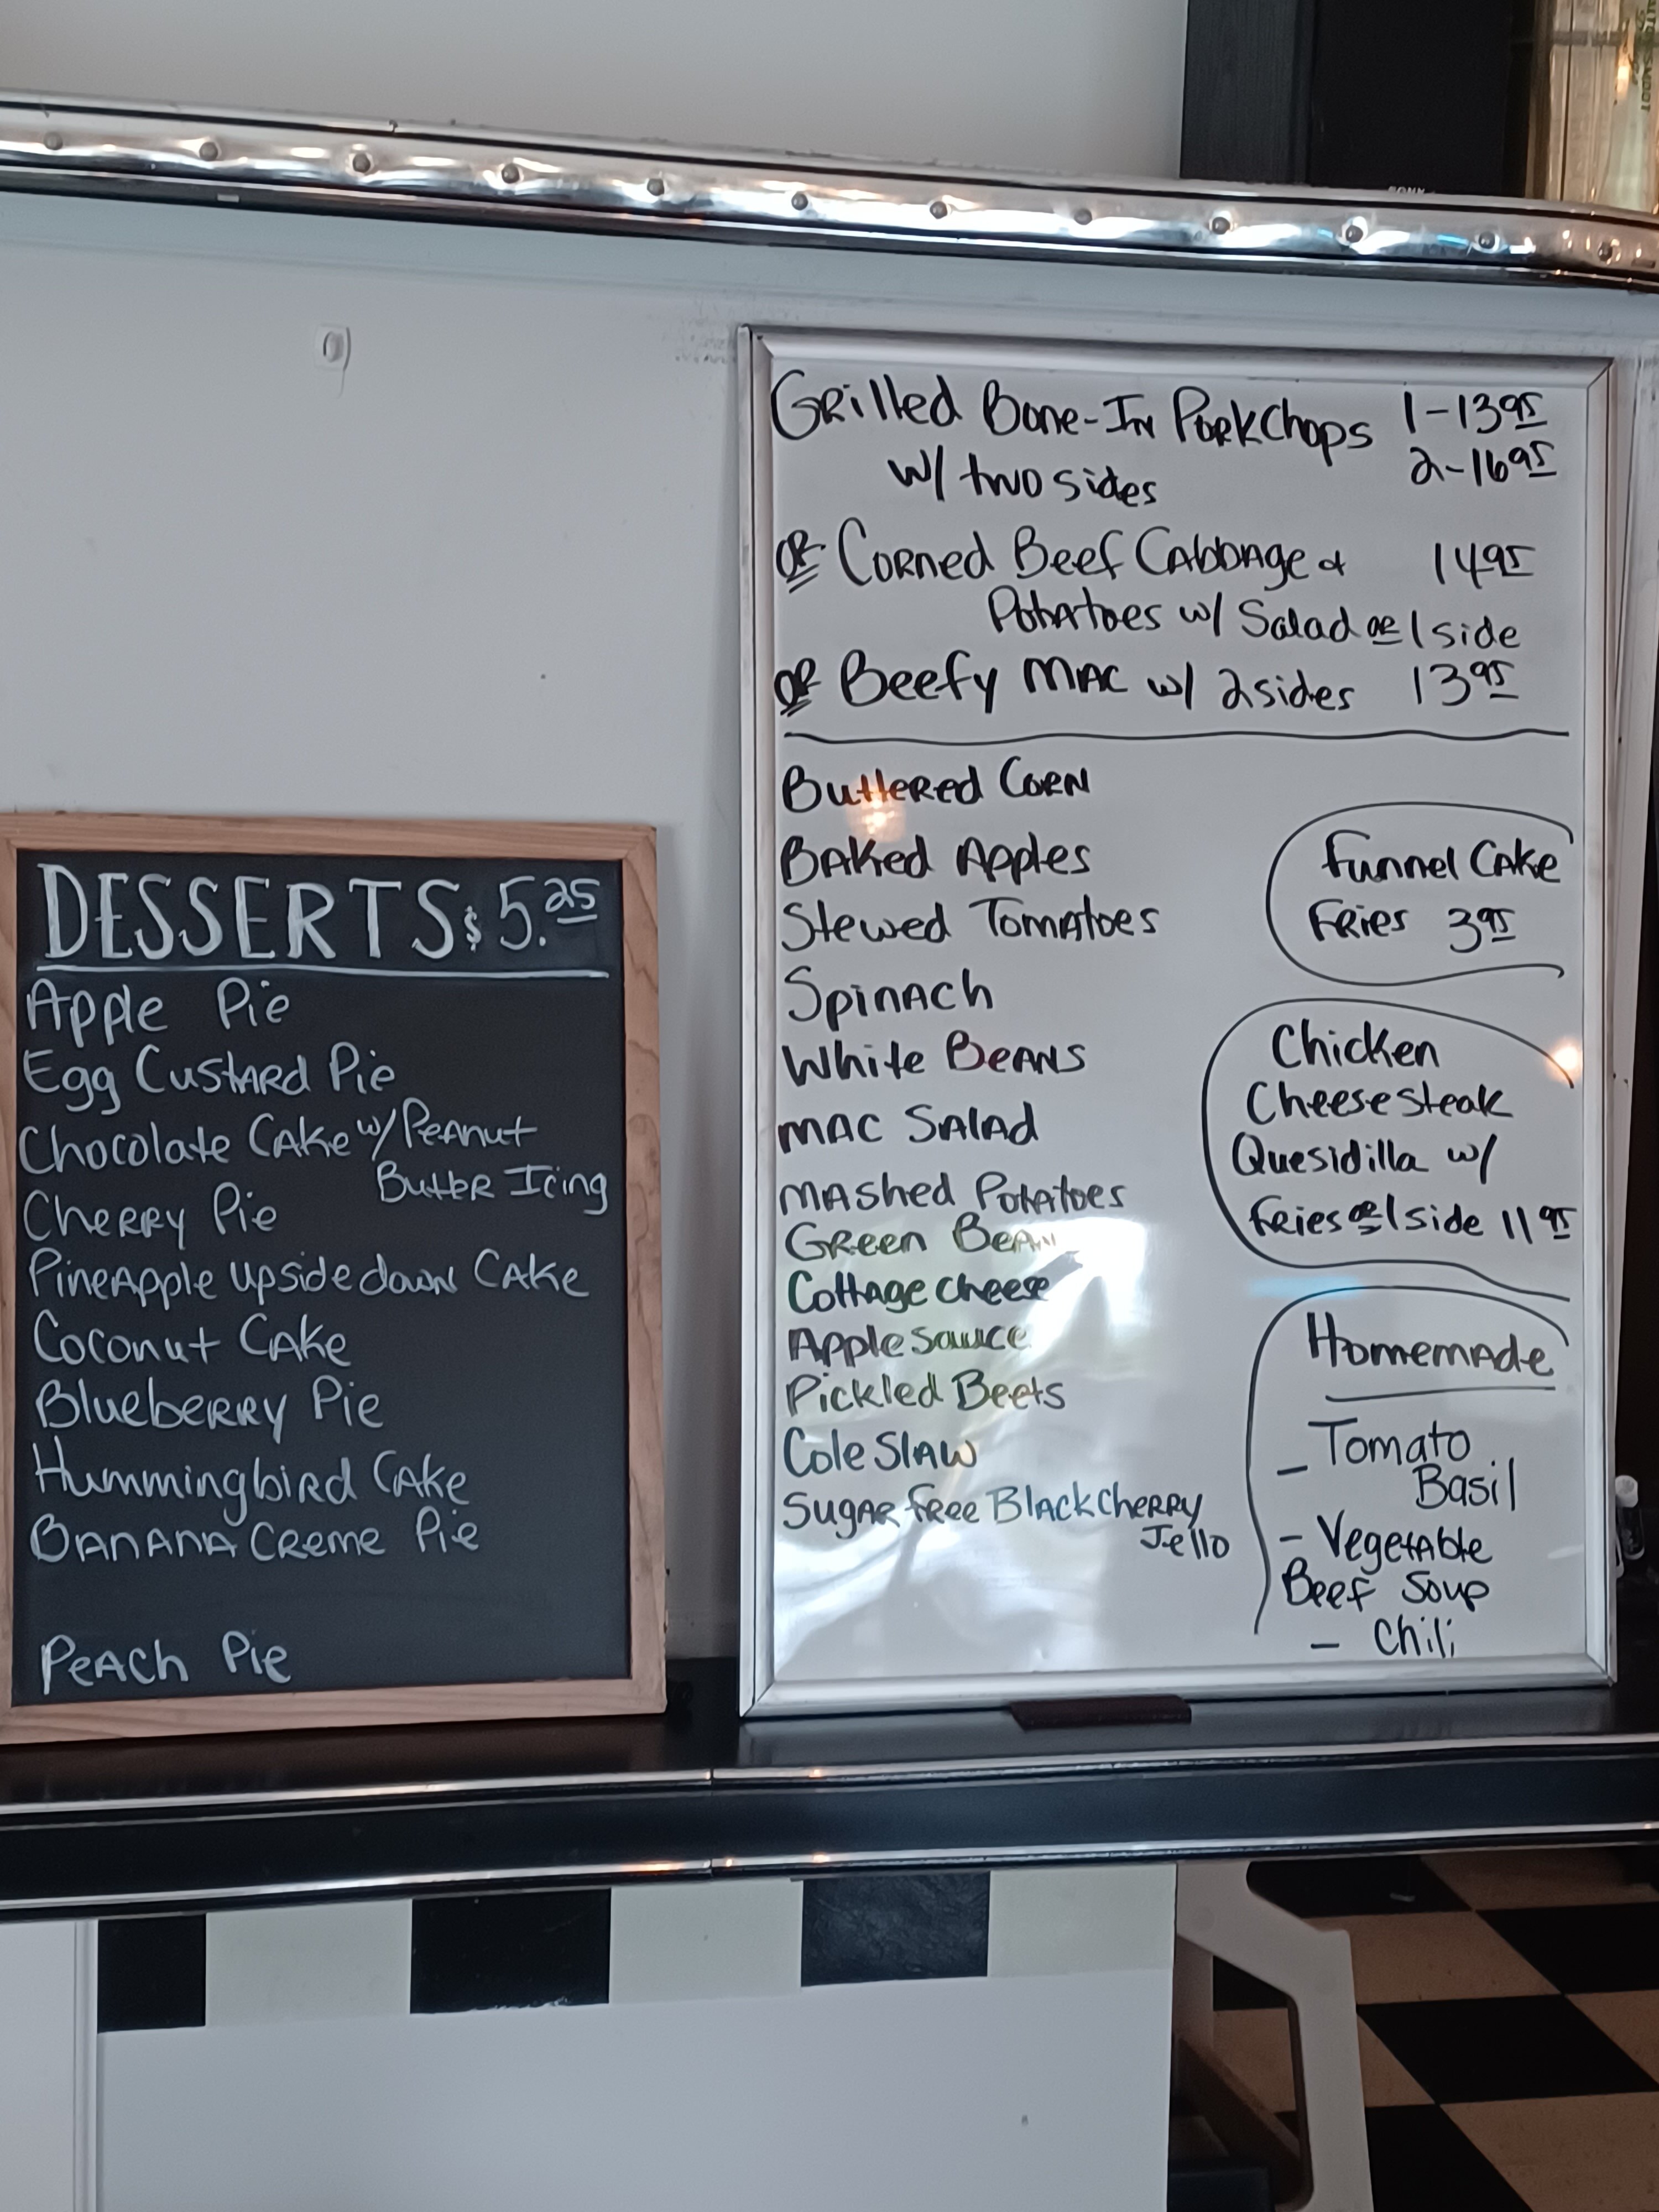 DESSERTS $5.25
Apple Pie
Egg Custard Pie
Chocolate Cake w/Peanut
Butter Icing
Cherry Pie
Pineapple upside down Cake
Coconut Cake
Blueberry Pie
Hummingbird Cake
Banana Creme Pie
Peach Pie
Grilled Bone-In Pork Chops 1-13 95
w/ two sides 2-16 95
or Corned Beef Cabbage & 14 95
Potatoes w/ Salad or 1 side
or Beefy Mac w/ 2 sides 13 95
Buttered Corn
Baked Apples
Stewed Tomatoes
Spinach
White Beans
Mac Salad
Mashed Potatoes
Green Bean
Cottage cheese
Apple sauce
Pickled Beets
Cole Slaw
Sugar free Black Cherry
Jello
Funnel Cake
Fries 3 95
Chicken
Cheesesteak
Quesidilla w/
fries or 1 side 11 95
Homemade
- Tomato
Basil
- Vegetable
Beef Soup
- Chili